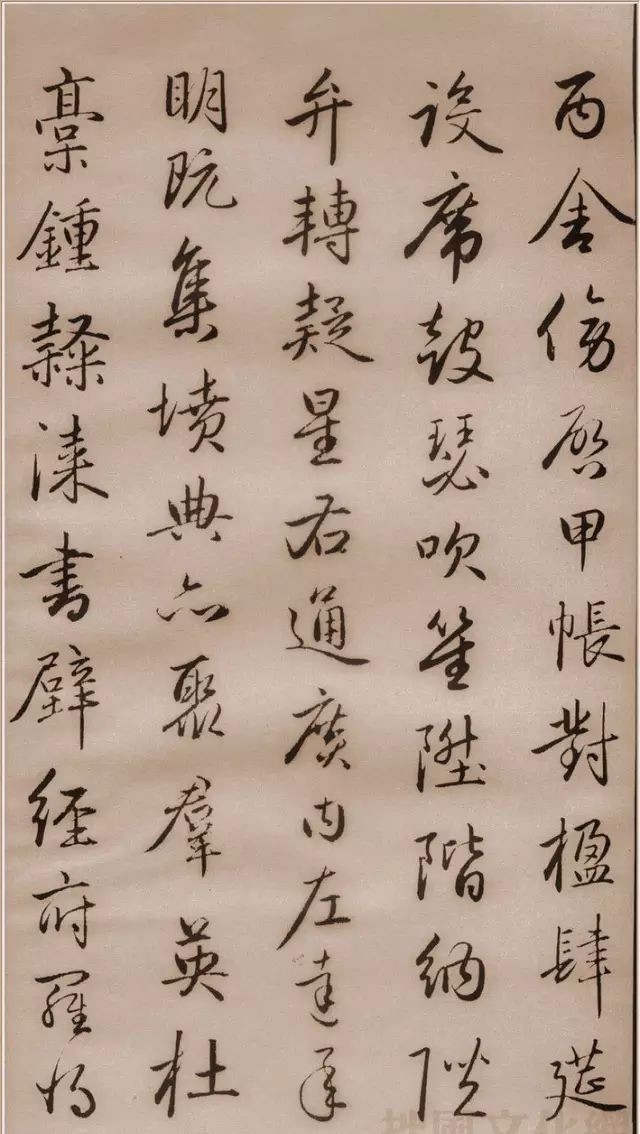 丙舍傍啟甲帳對楹肆筵
設席鼓瑟吹笙陞階納陛
弁轉疑星右通廣内左達承
明既集墳典亦聚羣英杜
稾鍾隸漆書壁經府羅將